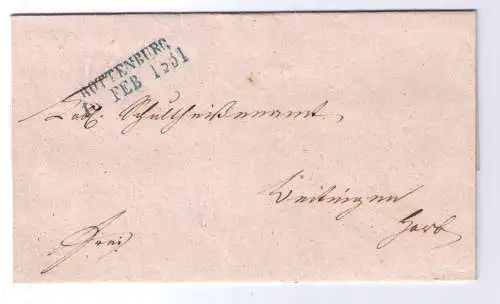 ROTTENBURG
FEB 1851
Schultheißenamt,
Weitingen
Horb
frei